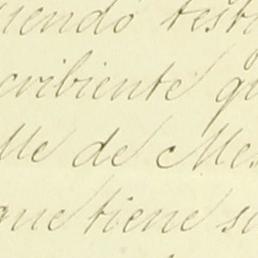 iendo test
cribiente q
lle de Mes
que tiene s